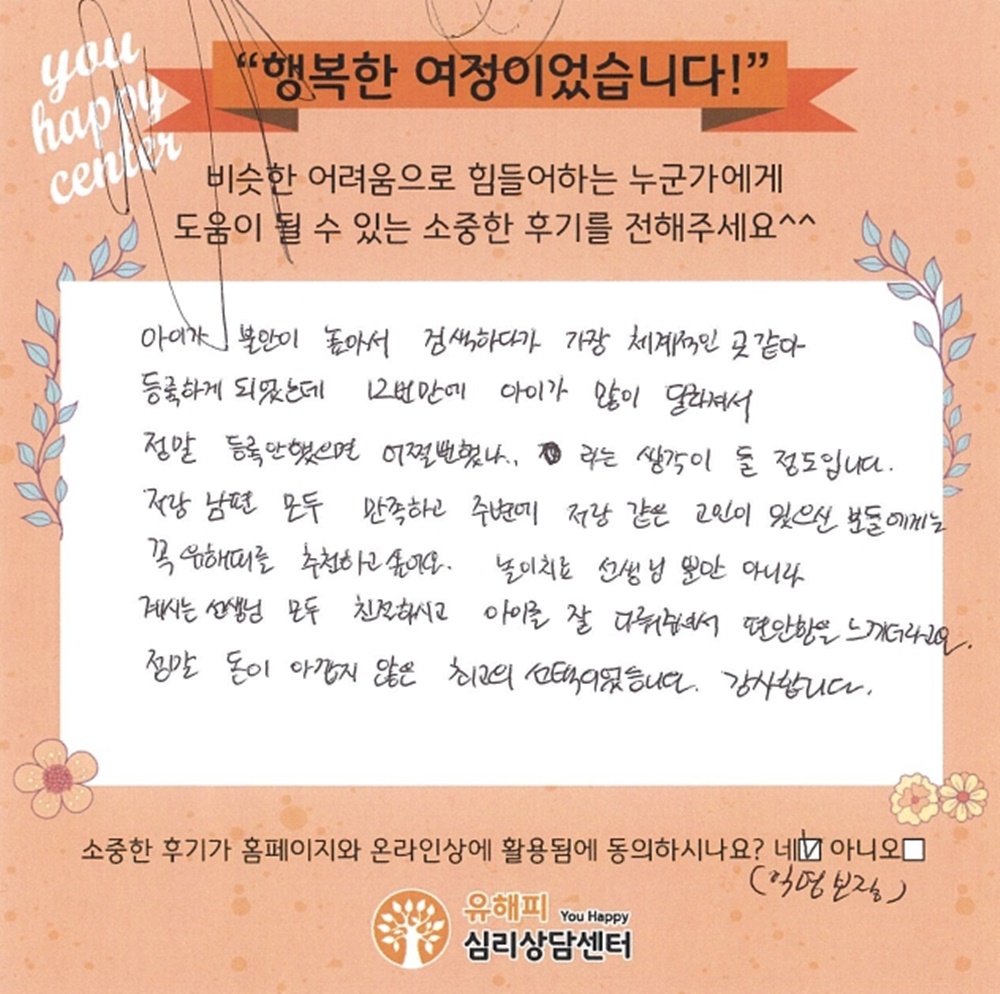 you
happy
center
“행복한 여정이었습니다!”
비슷한 어려움으로 힘들어하는 누군가에게
도움이 될 수 있는 소중한 후기를 전해주세요^^
아이가 불안이 높아서 검색하다가 가장 체계적인 곳같아
등록하게 되었는데 12번만에 아이가 많이 달라져서
정말 등록안했으면 어쩔뻔했나.. 라는 생각이 들 정도입니다.
저랑 남편 모두 만족하고 주변에 저랑 같은 고민이 있으신 분들에게는
꼭 유해피를 추천하고싶어요. 놀이치료 선생님 뿐만 아니라
계시는 선생님 모두 친절하시고 아이를 잘 다뤄주셔서 편안함을 느끼더라고요.
정말 돈이 아깝지 않은 최고의 선택이었습니다. 감사합니다.
소중한 후기가 홈페이지와 온라인상에 활용됨에 동의하시나요? 네☑ 아니오☐
(익명보장)
유해피 You Happy
심리상담센터